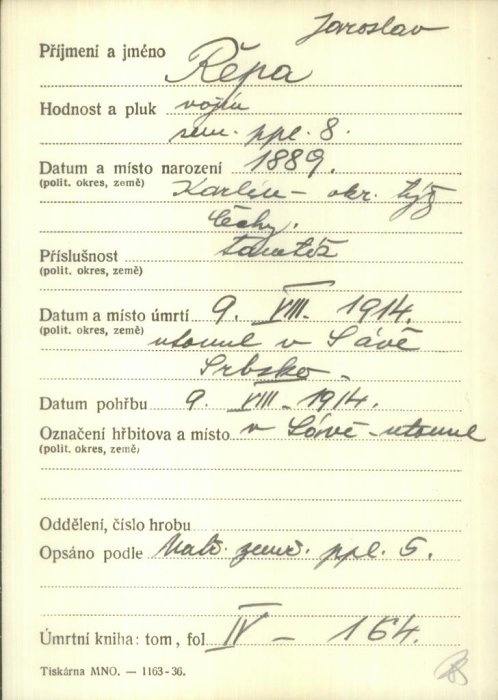 Jaroslav
Příjmení a jméno Řepa
Hodnost a pluk vojín
zem. ppl. 8.
Datum a místo narození 1889.
(polit. okres, země) Karlín - okr. týž
Čechy.
Příslušnost tamtéž
(polit. okres, země)
Datum a místo úmrtí 9. VIII. 1914.
(polit. okres, země) utonul v Sávě
Srbsko -
Datum pohřbu 9. VIII - 1914.
Označení hřbitova a místo v Sávě - utonul
(polit. okres, země)
Oddělení, číslo hrobu
Opsáno podle Matr. zemř. ppl. 5.
Úmrtní kniha: tom, fol IV - 164.
Tiskárna MNO. — 1163-36.